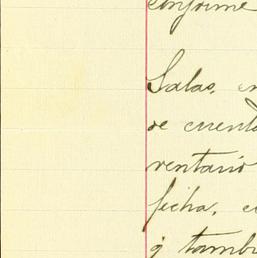 conforme
Salas, en
de cuenta
ventario
ficha, c
q tambi